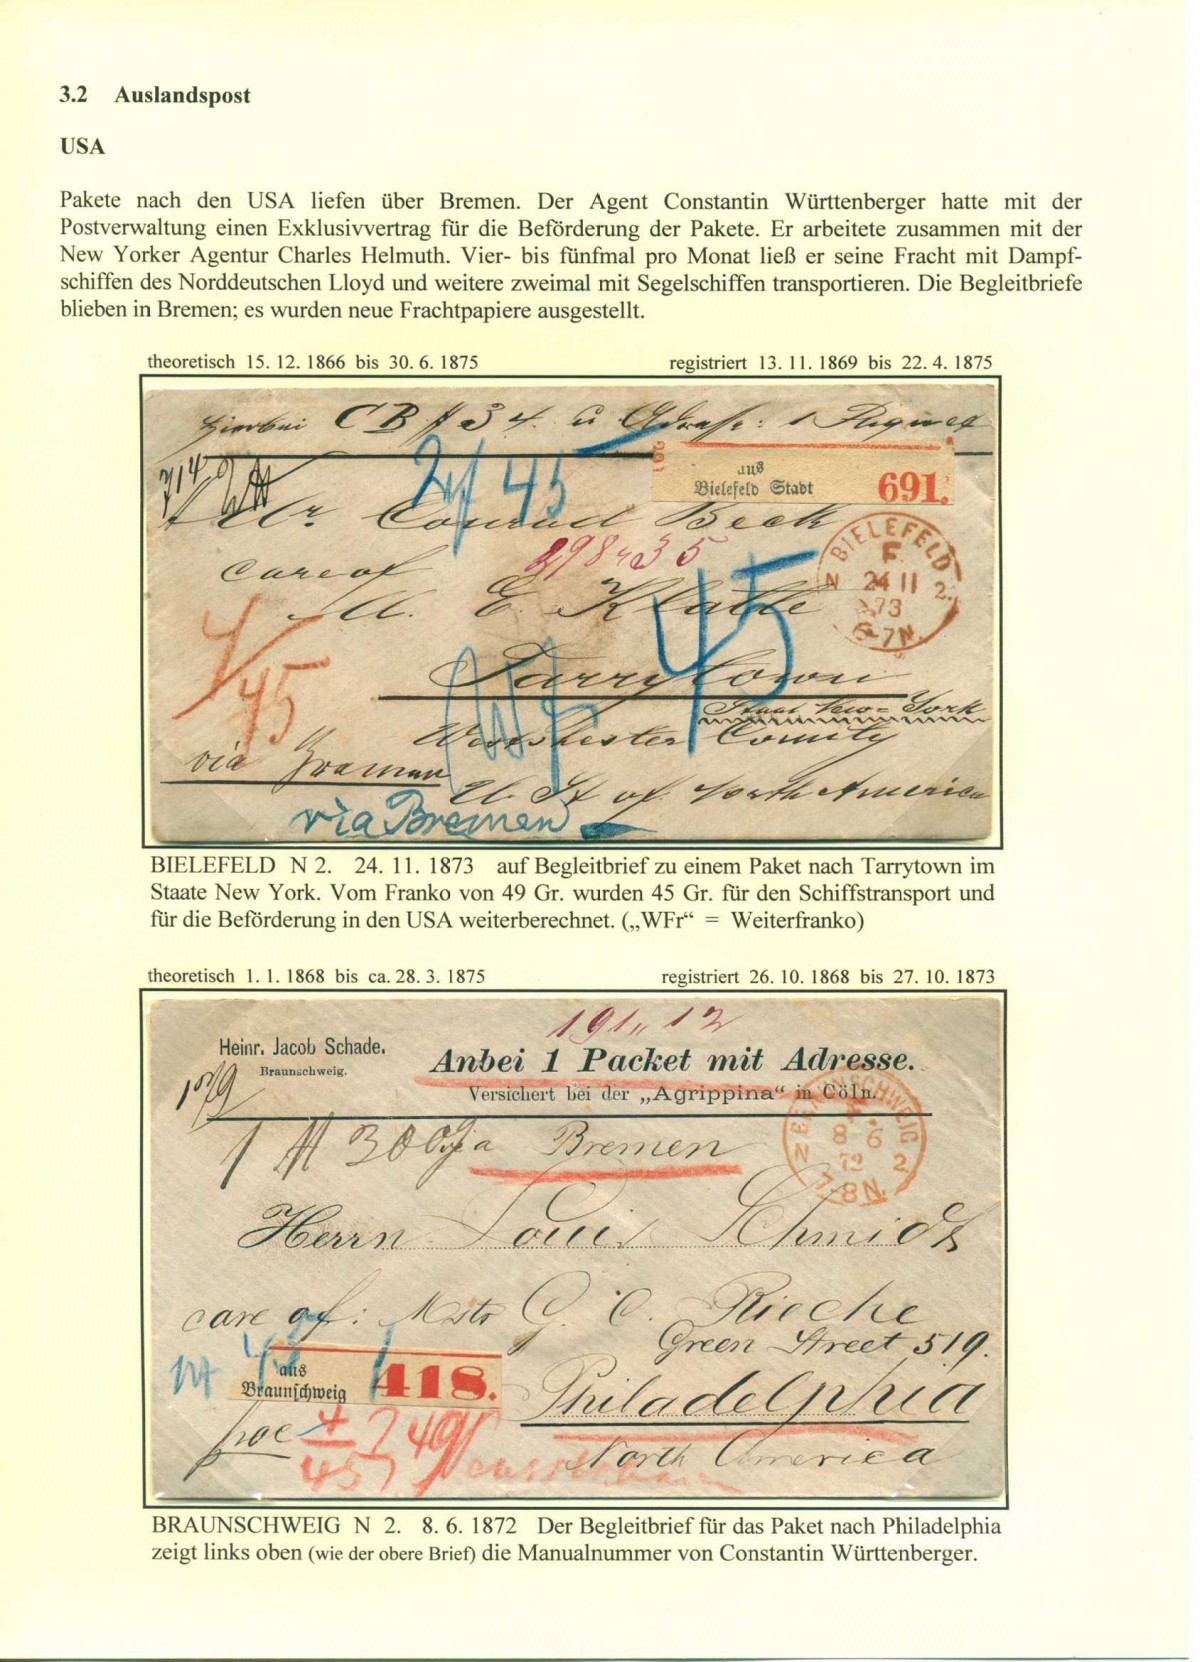 3.2 Auslandspost
USA
Pakete nach den USA liefen über Bremen. Der Agent Constantin Württenberger hatte mit der
Postverwaltung einen Exklusivvertrag für die Beförderung der Pakete. Er arbeitete zusammen mit der
New Yorker Agentur Charles Helmuth. Vier- bis fünfmal pro Monat ließ er seine Fracht mit Dampf-
schiffen des Norddeutschen Lloyd und weitere zweimal mit Segelschiffen transportieren. Die Begleitbriefe
blieben in Bremen; es wurden neue Frachtpapiere ausgestellt.
theoretisch 15. 12. 1866 bis 30. 6. 1875 registriert 13. 11. 1869 bis 22. 4. 1875
Hierbei CB # 34.
714
2/45
aus
Bielefeld Stadt 691.
Mr. Conrad Beck
BIELEFELD
F.
N 24 11 2.
73
6-7N.
care of
45
4/45
Tarrytown
Staat New-York
Westchester County
via Bremen
U. St. of North America
via Bremen
BIELEFELD N 2. 24. 11. 1873 auf Begleitbrief zu einem Paket nach Tarrytown im
Staate New York. Vom Franko von 49 Gr. wurden 45 Gr. für den Schiffstransport und
für die Beförderung in den USA weiterberechnet. („WFr“ = Weiterfranko)
theoretisch 1. 1. 1868 bis ca. 28. 3. 1875 registriert 26. 10. 1868 bis 27. 10. 1873
191,, 12
Heinr. Jacob Schade.
Braunschweig.
Anbei 1 Packet mit Adresse.
Versichert bei der „Agrippina“ in Cöln.
BRAUNSCHWEIG
N 8 6 2
72
7-8N.
via Bremen
Herrn Louis Schmidt
care of: Mstr G. C. Rieche
Green Street 519.
45
aus
Braunschweig 418.
Philadelphia
4
45
49
North America
BRAUNSCHWEIG N 2. 8. 6. 1872 Der Begleitbrief für das Paket nach Philadelphia
zeigt links oben (wie der obere Brief) die Manualnummer von Constantin Württenberger.